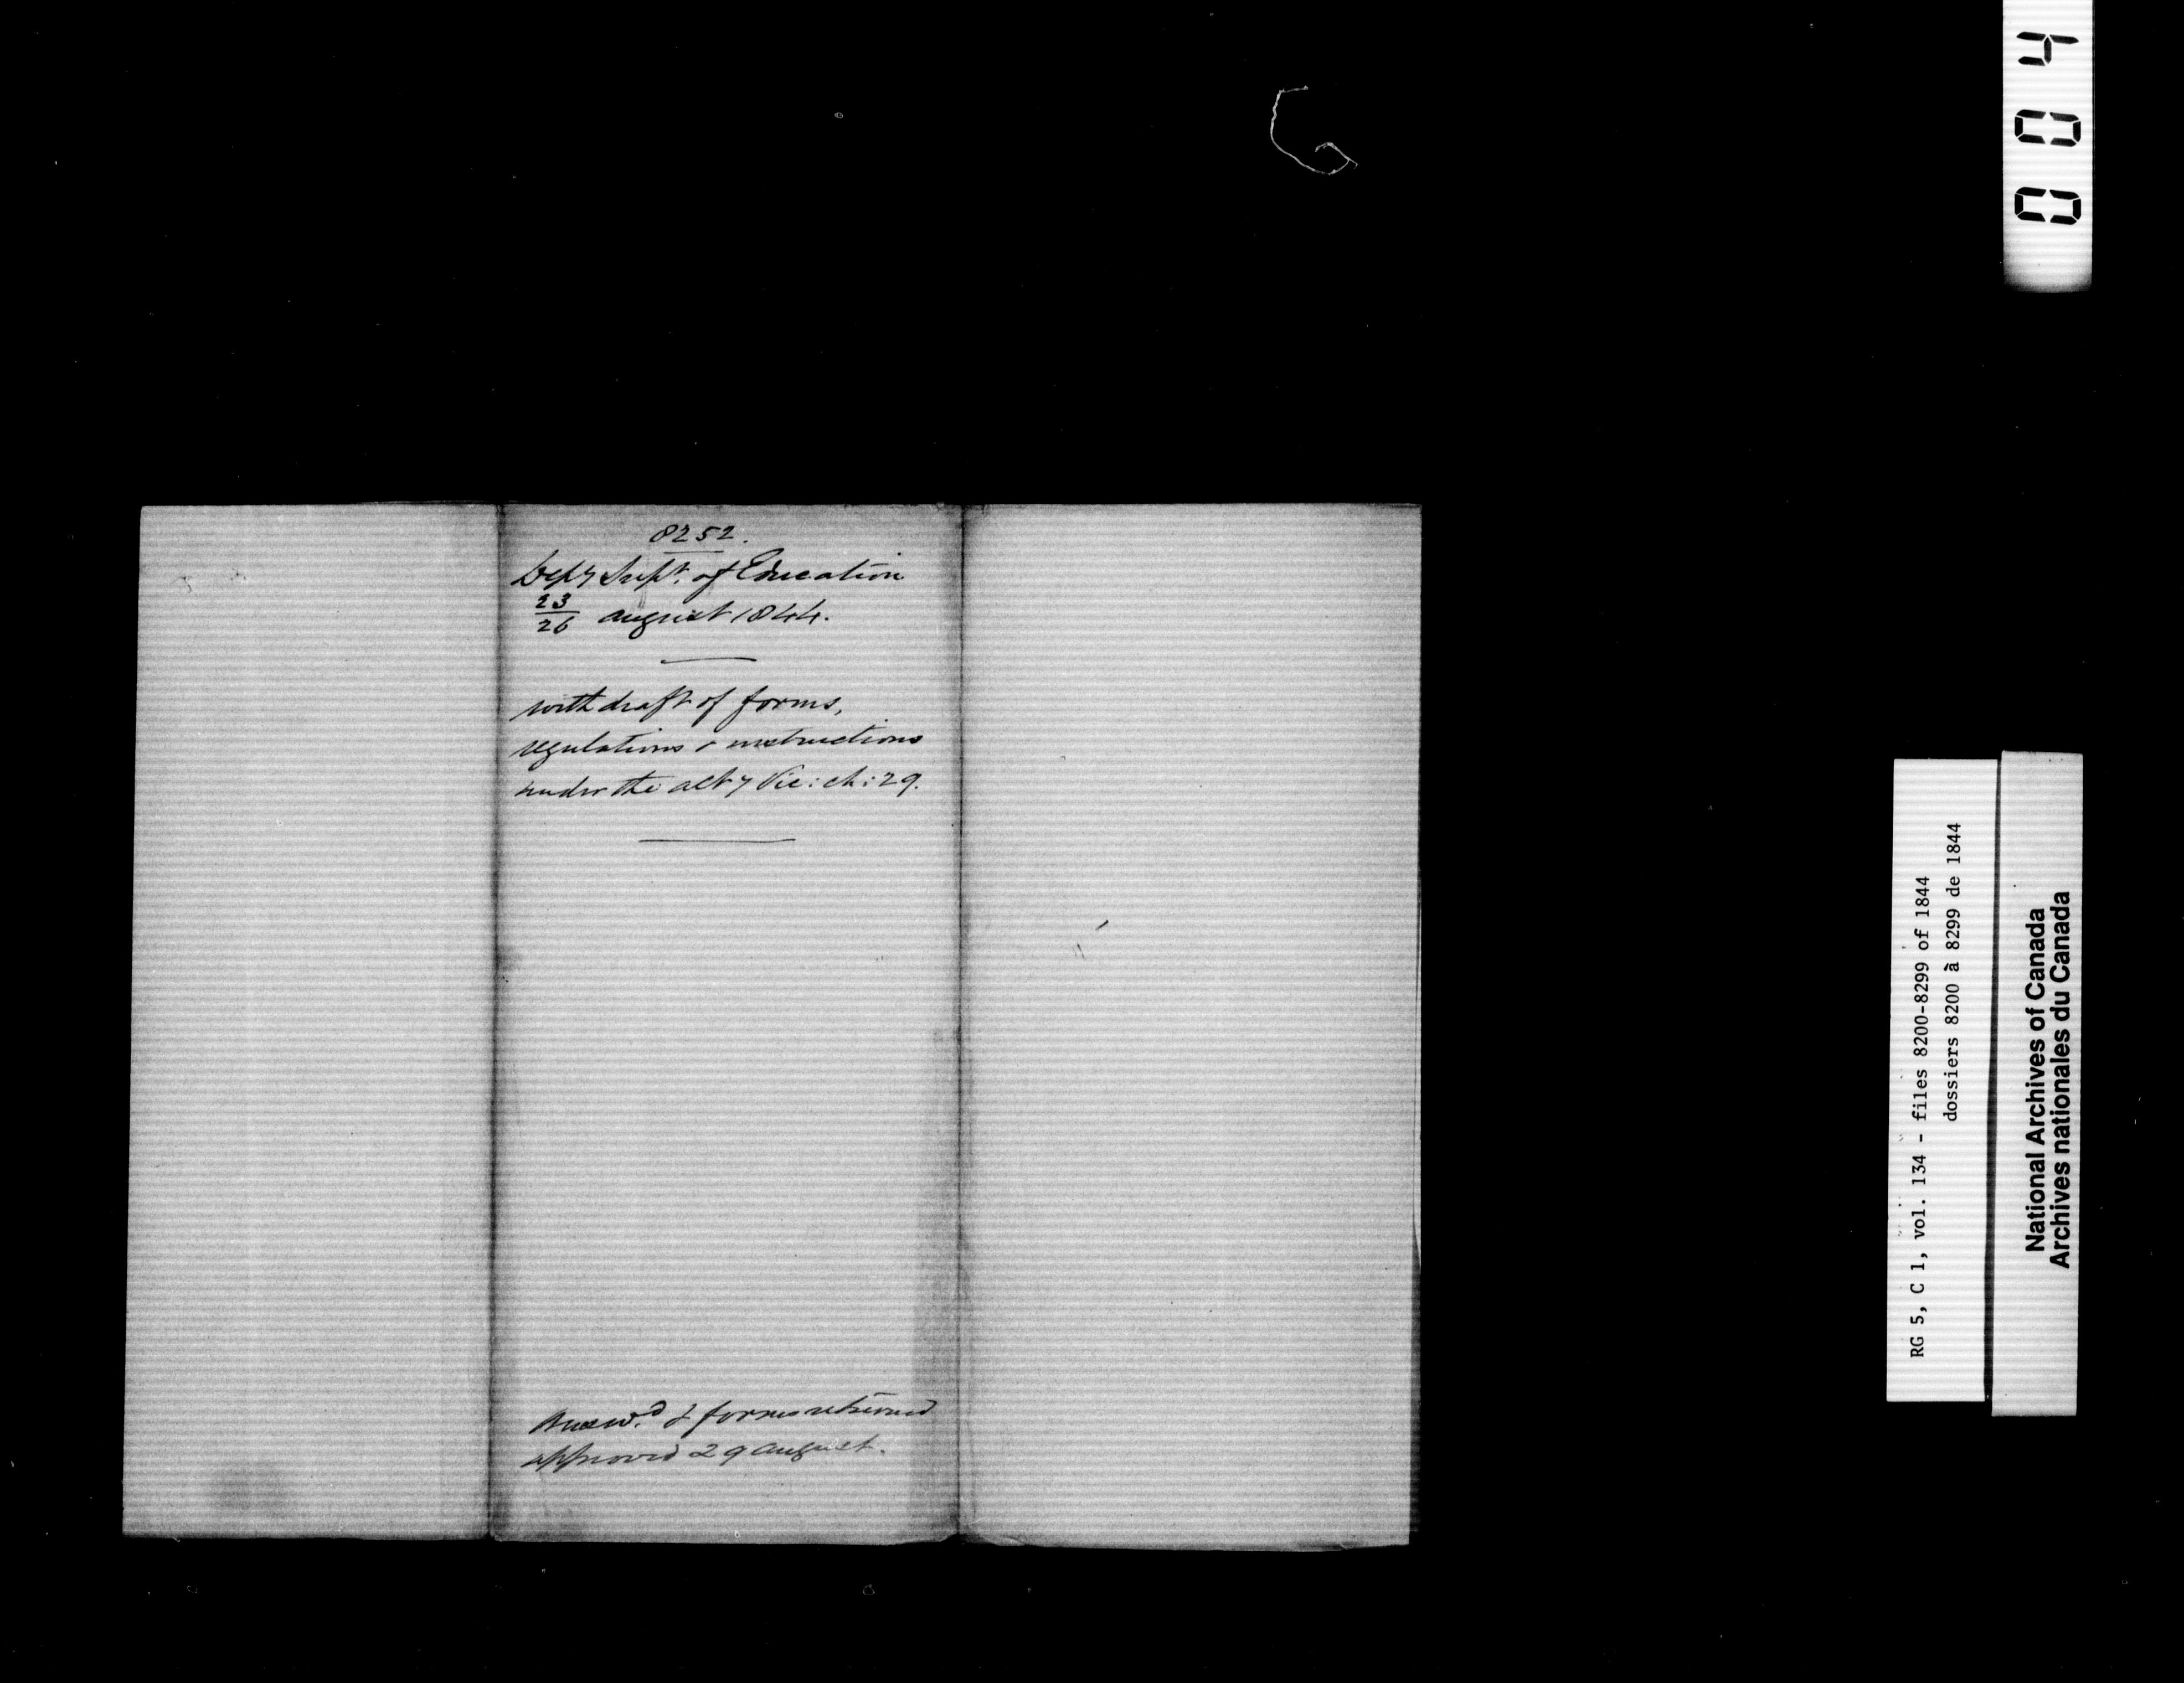 8252.
Depy Supt. of Education
23/26 august 1844.
with draft of forms,
regulations & instructions
under the act 7 Vic: ch: 29.
Answd. & forms returned
approved 29 august.
RG 5, C 1, vol. 134 - files 8200-8299 of 1844
dossiers 8200 à 8299 de 1844
National Archives of Canada
Archives nationales du Canada
004